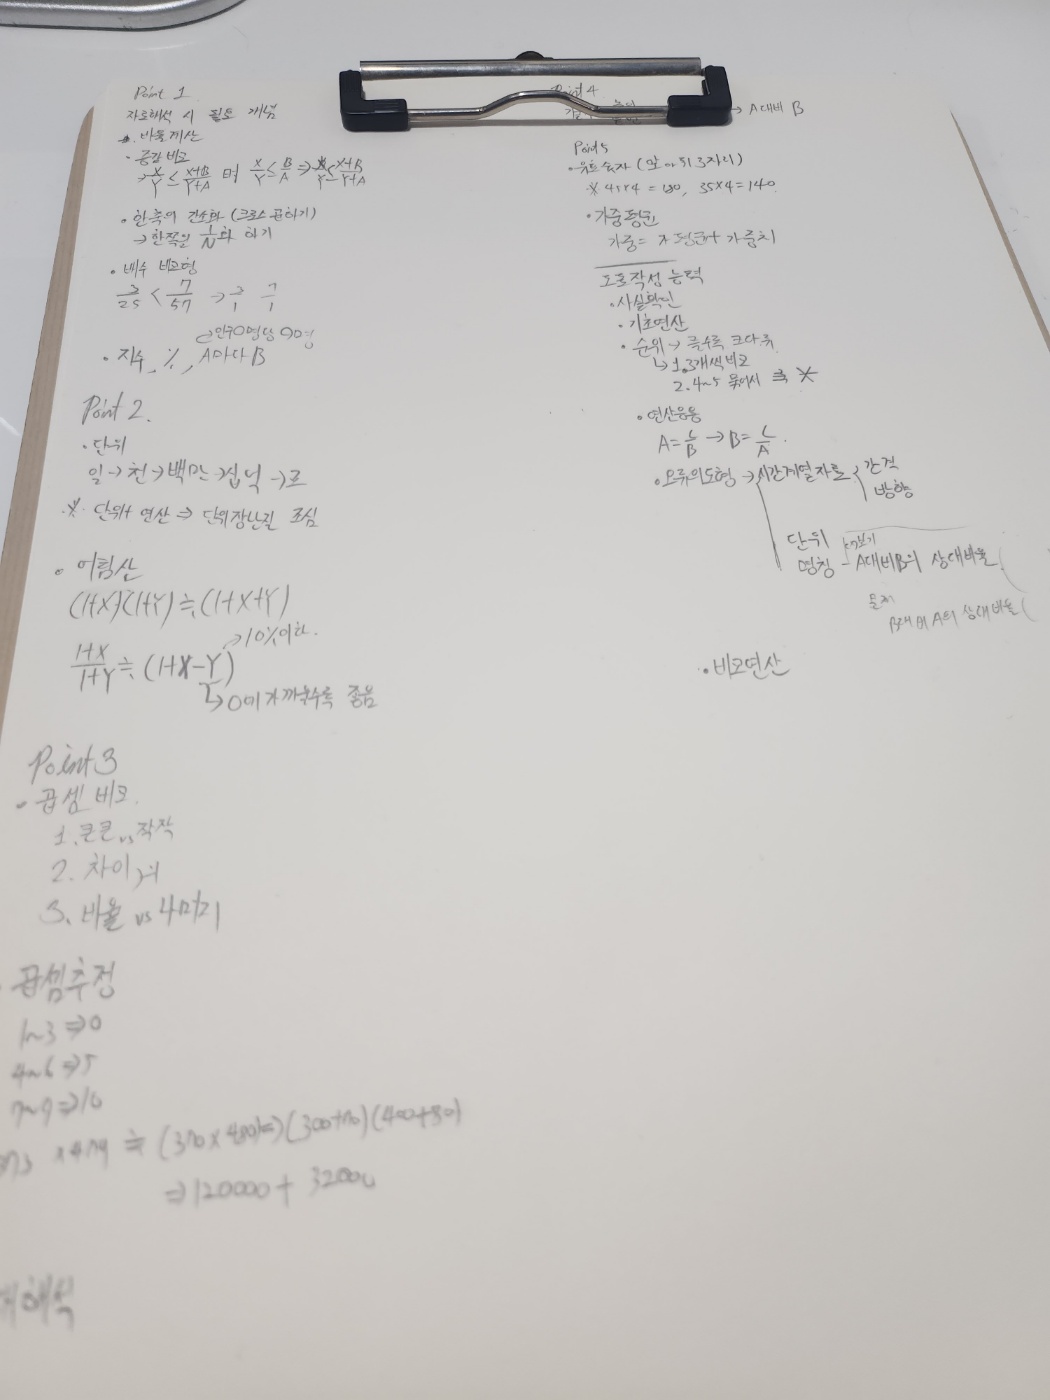 Point 1
자료해석 시 필요 개념
· 비율계산
· 증감 비교
→ X/Y ≤ X+B/Y+A 며 X/Y ≤ B/A ⇒ X/Y ≤ X+B/Y+A
· 한쪽의 간소화 (크로스 곱하기)
→ 한쪽을 1/N화 하기
· 배수 비교형
3/25 < 7/57 → 3/1 7/1
· 지수, %, A마다 B
Point 2.
· 단위
일 → 천 → 백만 → 십억 → 조
※ 단위+ 연산 ⇒ 단위장난질 조심
· 어림산
(1+X)(1+Y) ≒ (1+X+Y)
→ 10%이하.
1+X/1+Y ≒ (1+X-Y)
↳ 0에 가까울수록 좋음
Point 3
· 곱셈 비교.
1. 큰큰 vs 작작
2. 차이
3. 비율 vs
곱셈추정
1~3 ⇒ 0
4~6 ⇒ 5
7~9 ⇒ 10
x479 ≒ (370 x 480) ⇒ (300+70)(400+80)
⇒ 120000 + 32000
해석
Point 4
→ A대비 B
Point 5
· 유효숫자 (앞에서 3자리)
※ 45x4 = 180, 35x4 = 140.
· 가중평균
도표작성 능력
· 사실확인
· 기초연산
· 순위 → 클수록 크다류
↳ 1. 3개씩 비교
2. 4~5
· 연산응용
A = C/B → B = C/A.
· 오류의도형 → 시간계열자료 간격
방향
단위
보기
명칭 - A대비B의 상대비율
문제
B대비 A의 상대비율
· 비교연산